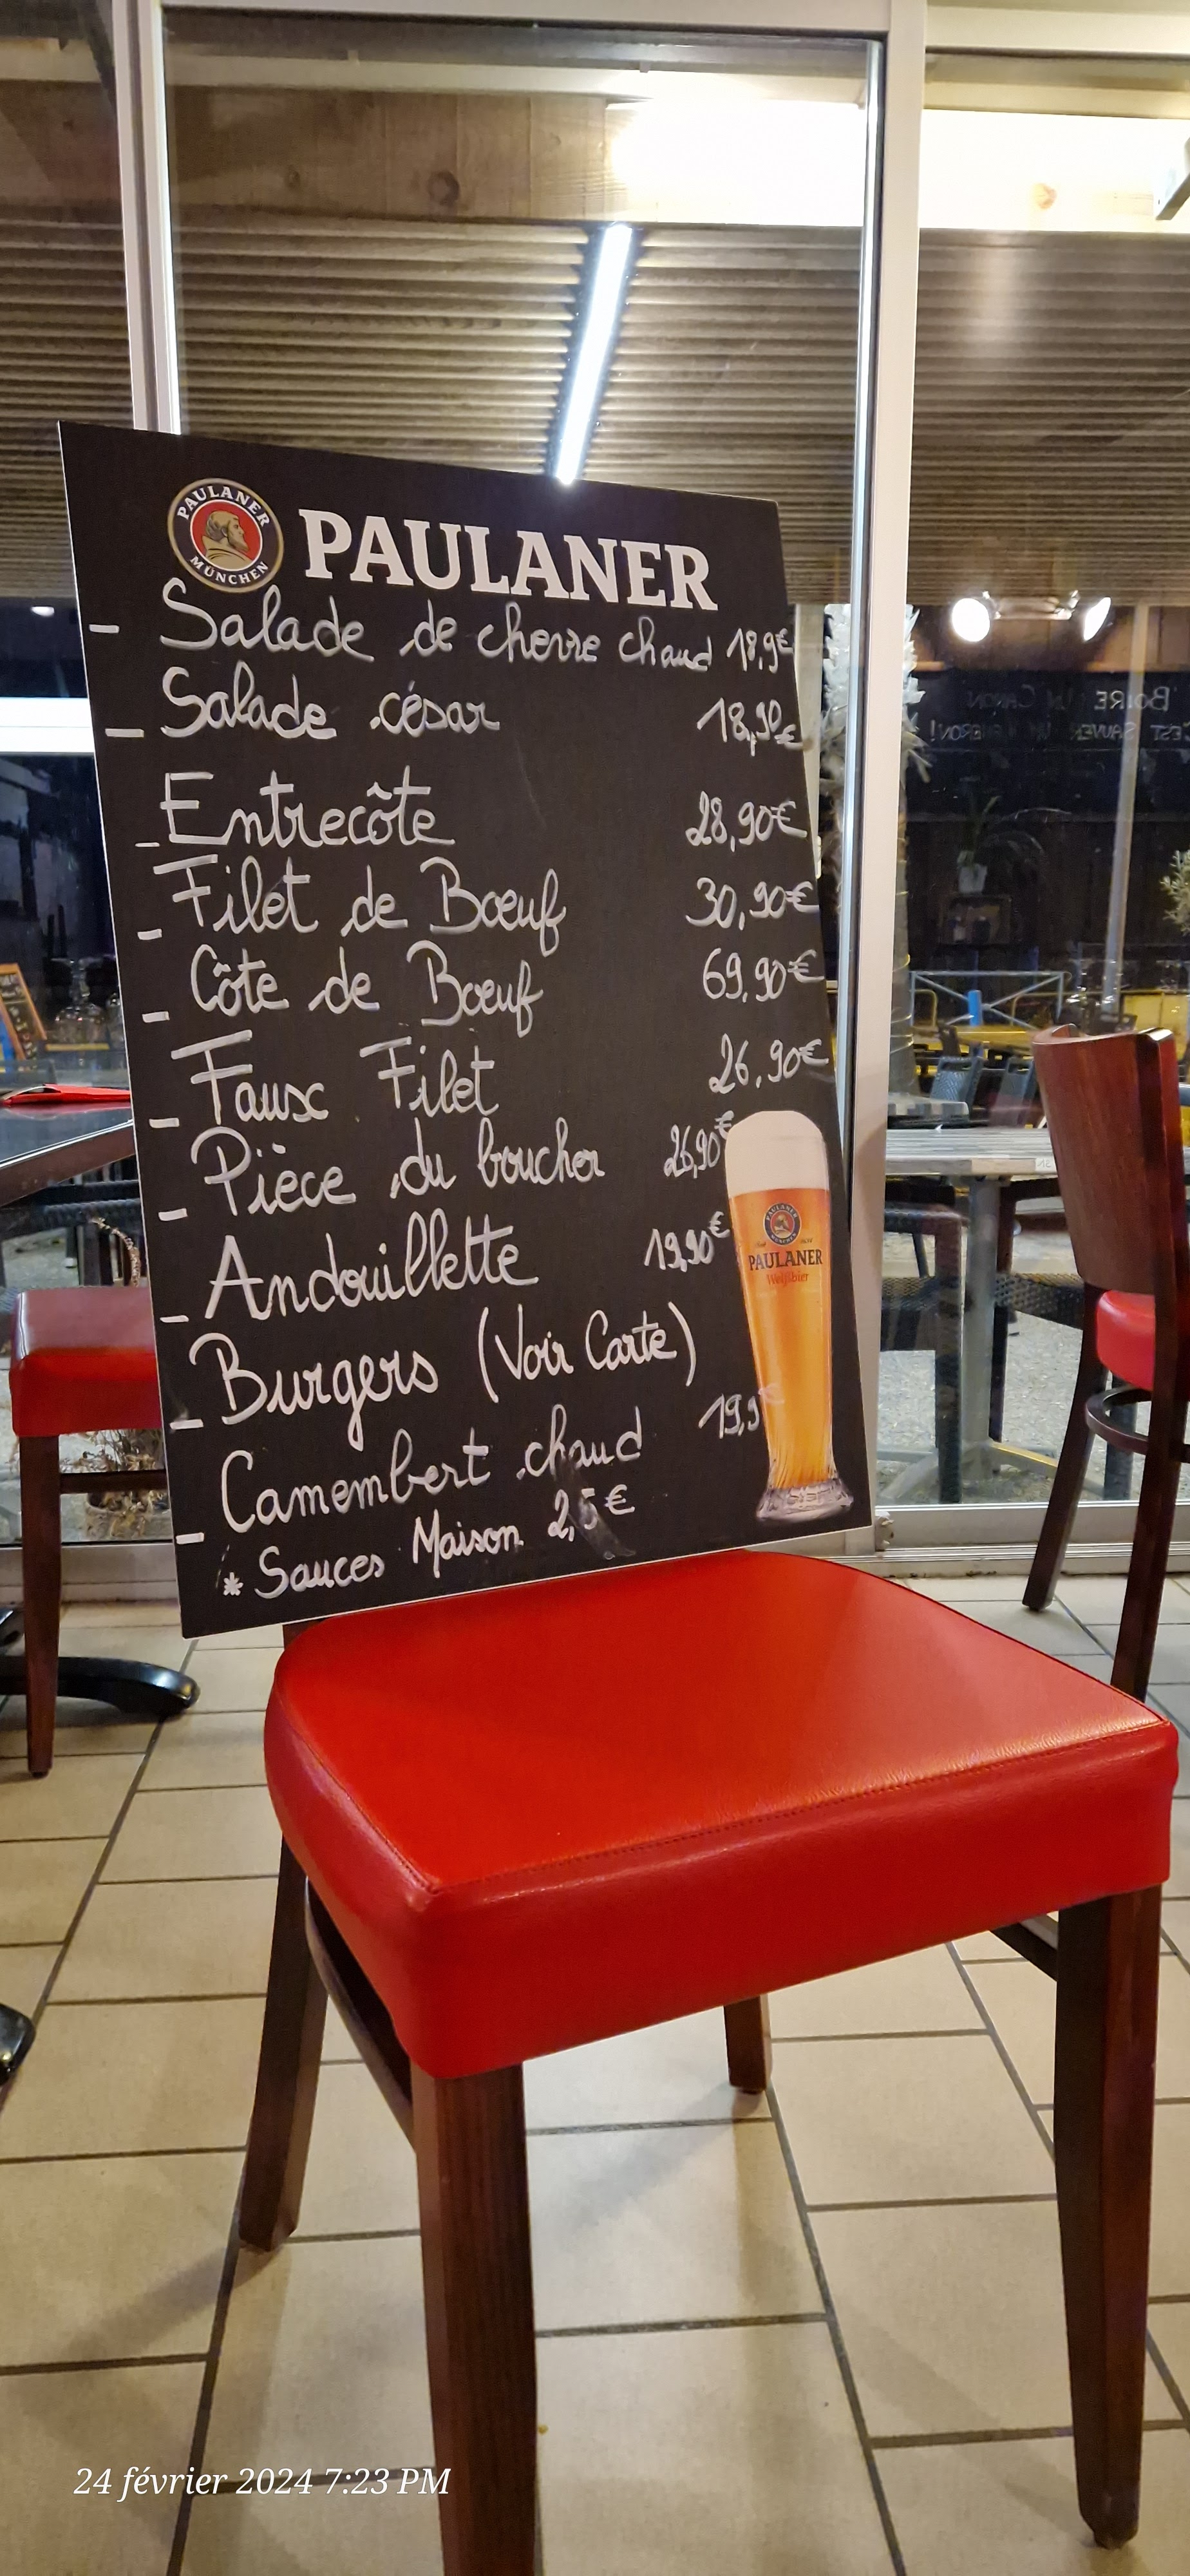 PAULANER
MÜNCHEN
PAULANER
- Salade de chevre chaud 18,9€
- Salade césar 18,90€
- Entrecôte 28,90€
- Filet de Bœuf 30,90€
- Côte de Bœuf 69,90€
- Faux Filet 26,90€
- Pièce du boucher 26,90€
- Andouillette 19,90€
- Burgers (Voir Carte)
- Camembert chaud 19,9€
* Sauces Maison 2,5€
PAULANER
PAULANER
Weißbier
BOIRE UN CANON
C'EST SAUVER UN VIGNERON!
24 février 2024 7:23 PM